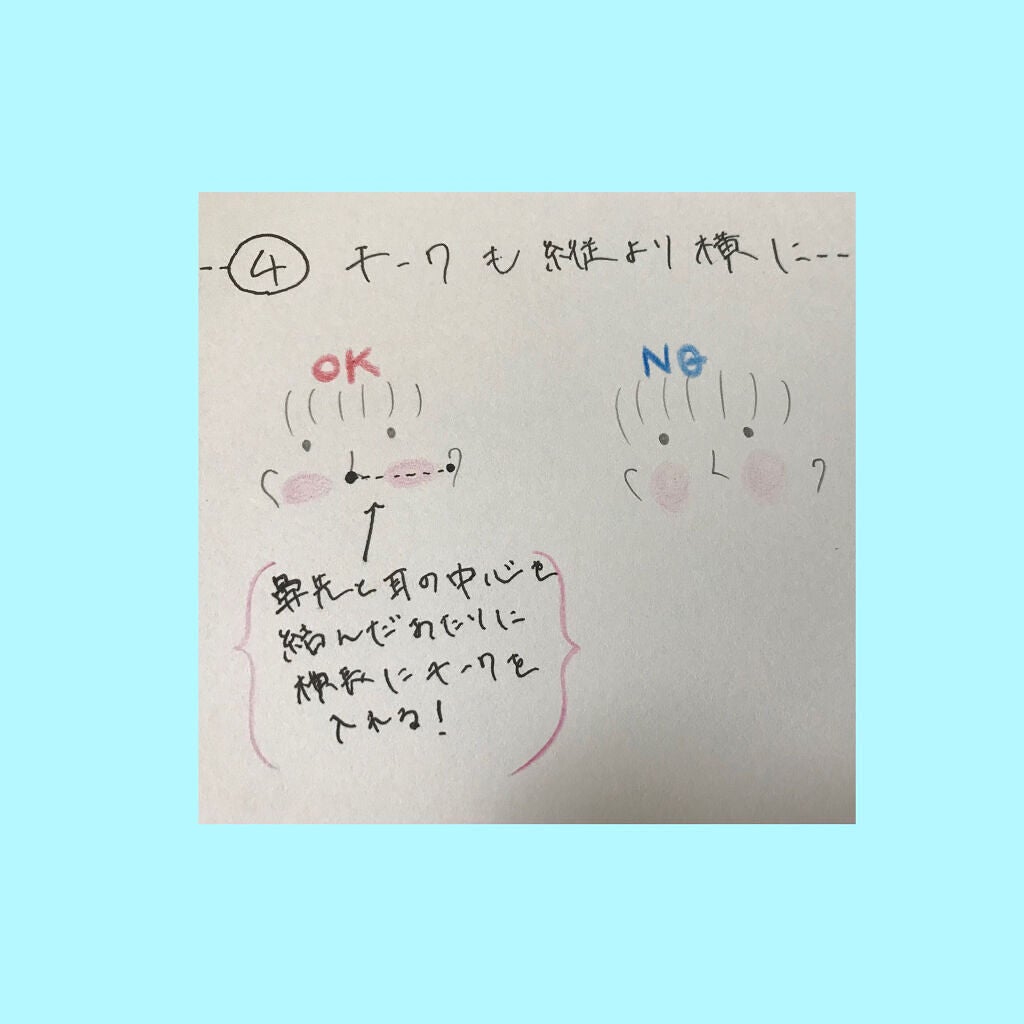 ④ チークも縦より横に
OK
NG
鼻先と耳の中心を
結んだあたりに
横長にチークを
入れる!